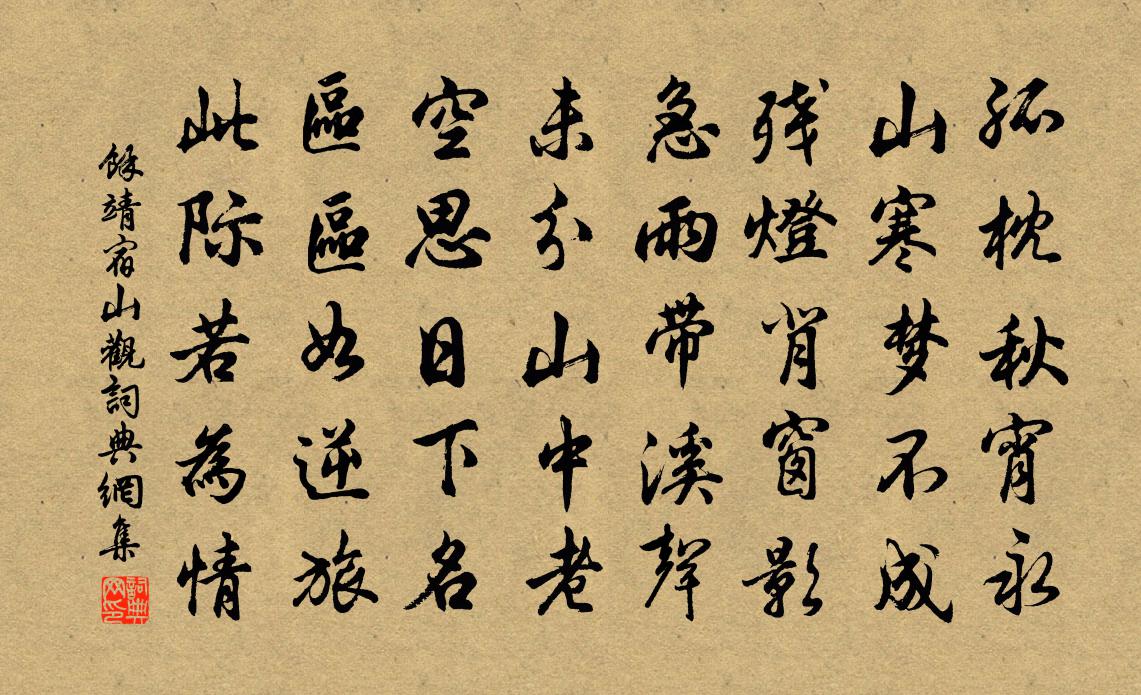 孤枕秋宵永
山寒梦不成
残燈背窗影
急雨帶溪聲
未分山中老
空思日下名
區區如逆旅
此际若為情
餘靖宿山觀詞典網集
詞典网印